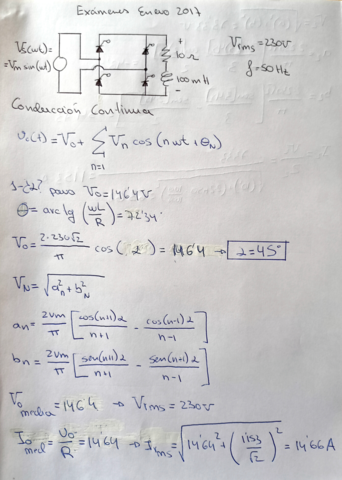 Exámenes Enero 2017
Vs(wt)=
=Vm sin(wt)
+
10 Ω
100 mH
-
Vrms = 230v
f = 50 Hz
Conducción Continua
vc(t) = Vo + ∑ n=1 Vn cos(nwt + θN)
1-¿α? para Vo = 146'4 V
θ = arc tg (wL/R) = 72'34º
Vo = 2·230√2/π cos(α) = 146'4 → α = 45º
VN = √(a²n + b²N)
an = 2Vm/π [cos(n+1)α/n+1 - cos(n-1)α/n-1]
bn = 2Vm/π [sen(n+1)α/n+1 - sen(n-1)α/n-1]
Vo media = 146'4 → Vrms = 230v
Io med = Vo/R = 14'64 → Irms = √(14'64² + (1'153/√2)²) = 14'66 A